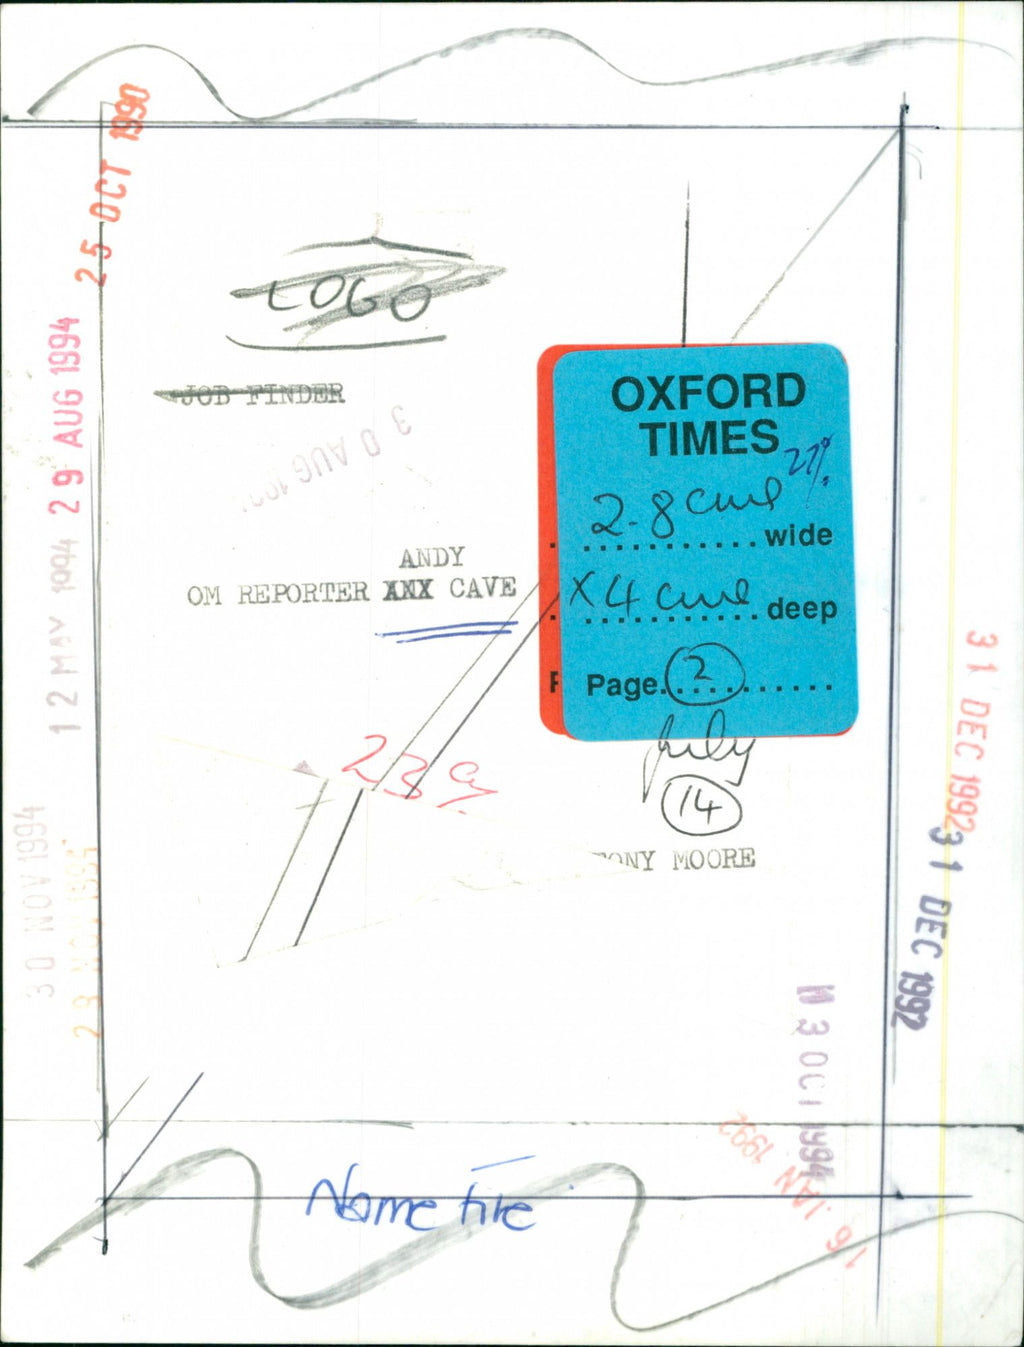 25 OCT 1990
LOGO
JOB FINDER
29 AUG 1994
30 AUG
OXFORD
TIMES
27%
2.8 cms wide
X 4 cms deep
Page 2
ANDY
OM REPORTER XNX CAVE
12 MAY 1994
July
14
23
TONY MOORE
31 DEC 1992
31 DEC 1992
30 NOV 1994
OCT 1994
16 JAN 1992
Name file